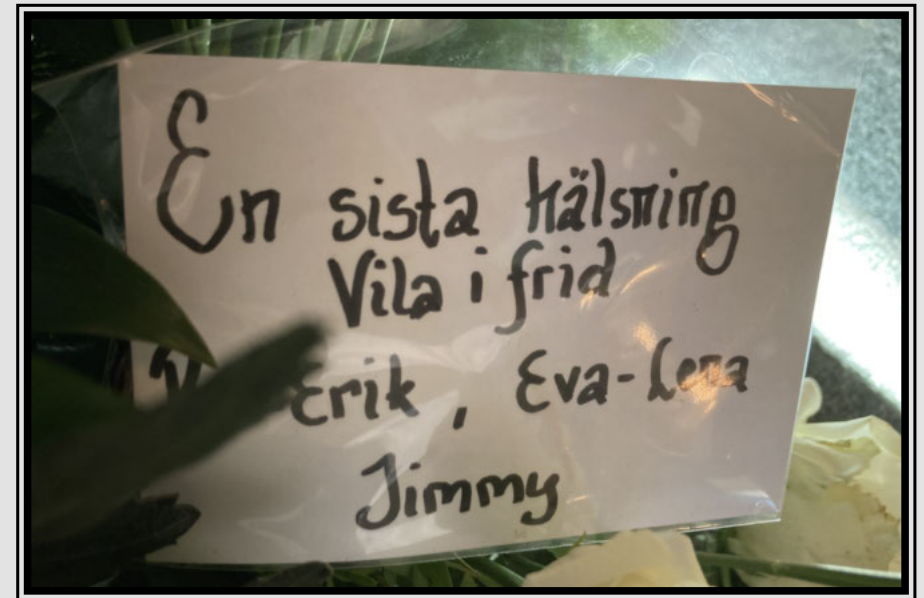 En sista hälsning
Vila i frid
Erik, Eva-Lena
Jimmy